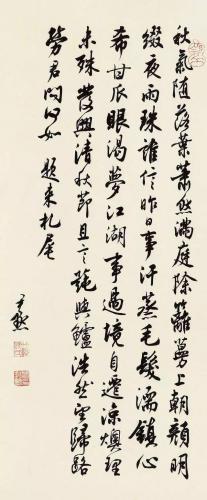 秋氣隨落葉蕭然滿庭除籬蔓上朝顏明
綴夜雨珠誰信昨日事汗蒸毛髮濡鎮心
希甘瓜眼渴夢江湖事過境自遷涼燠理
未殊發興清秋節且言蒓與鱸浩然望歸路
勞君問何如 題來札尾
尹默